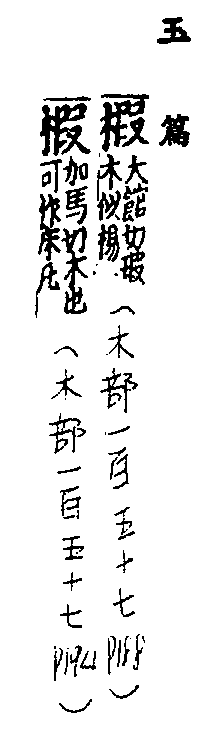 玉篇
椴
大館切椴
木似楊
(木部一百五十七 P188)
椵
加馬切木也
可作床几
(木部一百五十七 P194)